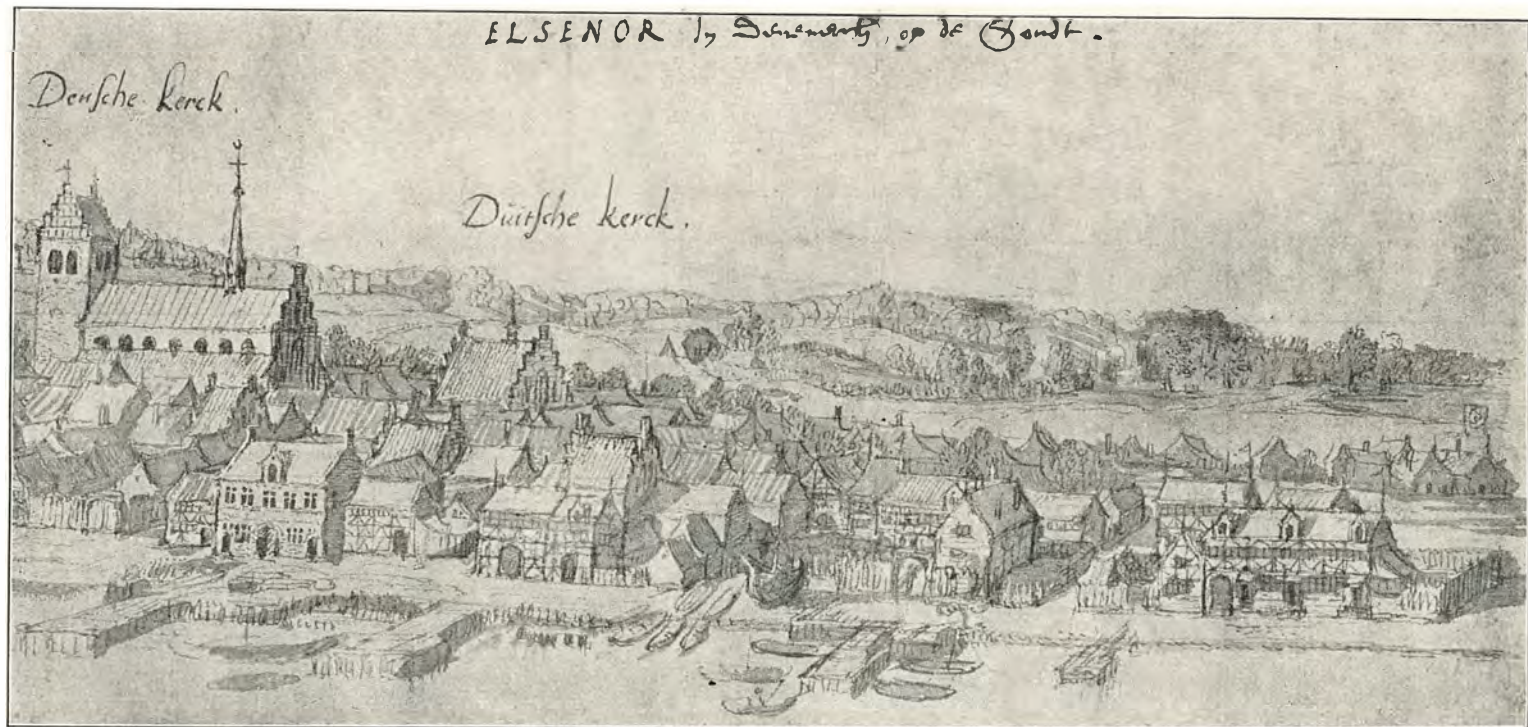 ELSENOR In Denemark, op de Sondt.
Densche kerck.
Duitsche kerck.